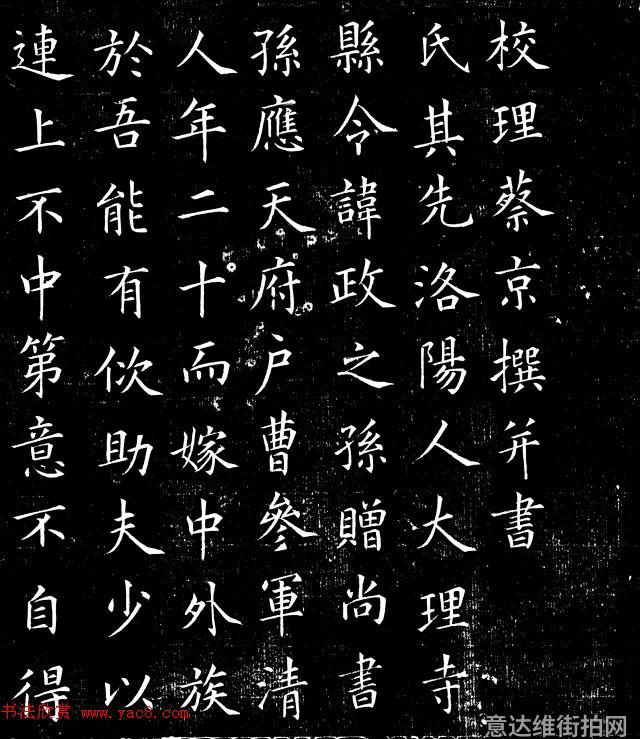 校理蔡京撰并書
氏其先洛陽人大理寺
縣令諱政之孫贈尚書
孫應天府户曹參軍清
人年二十而嫁中外族
於吾能有佽助夫少以
連上不中第意不自得
书法欣赏 www.yac8.com
意达维街拍网